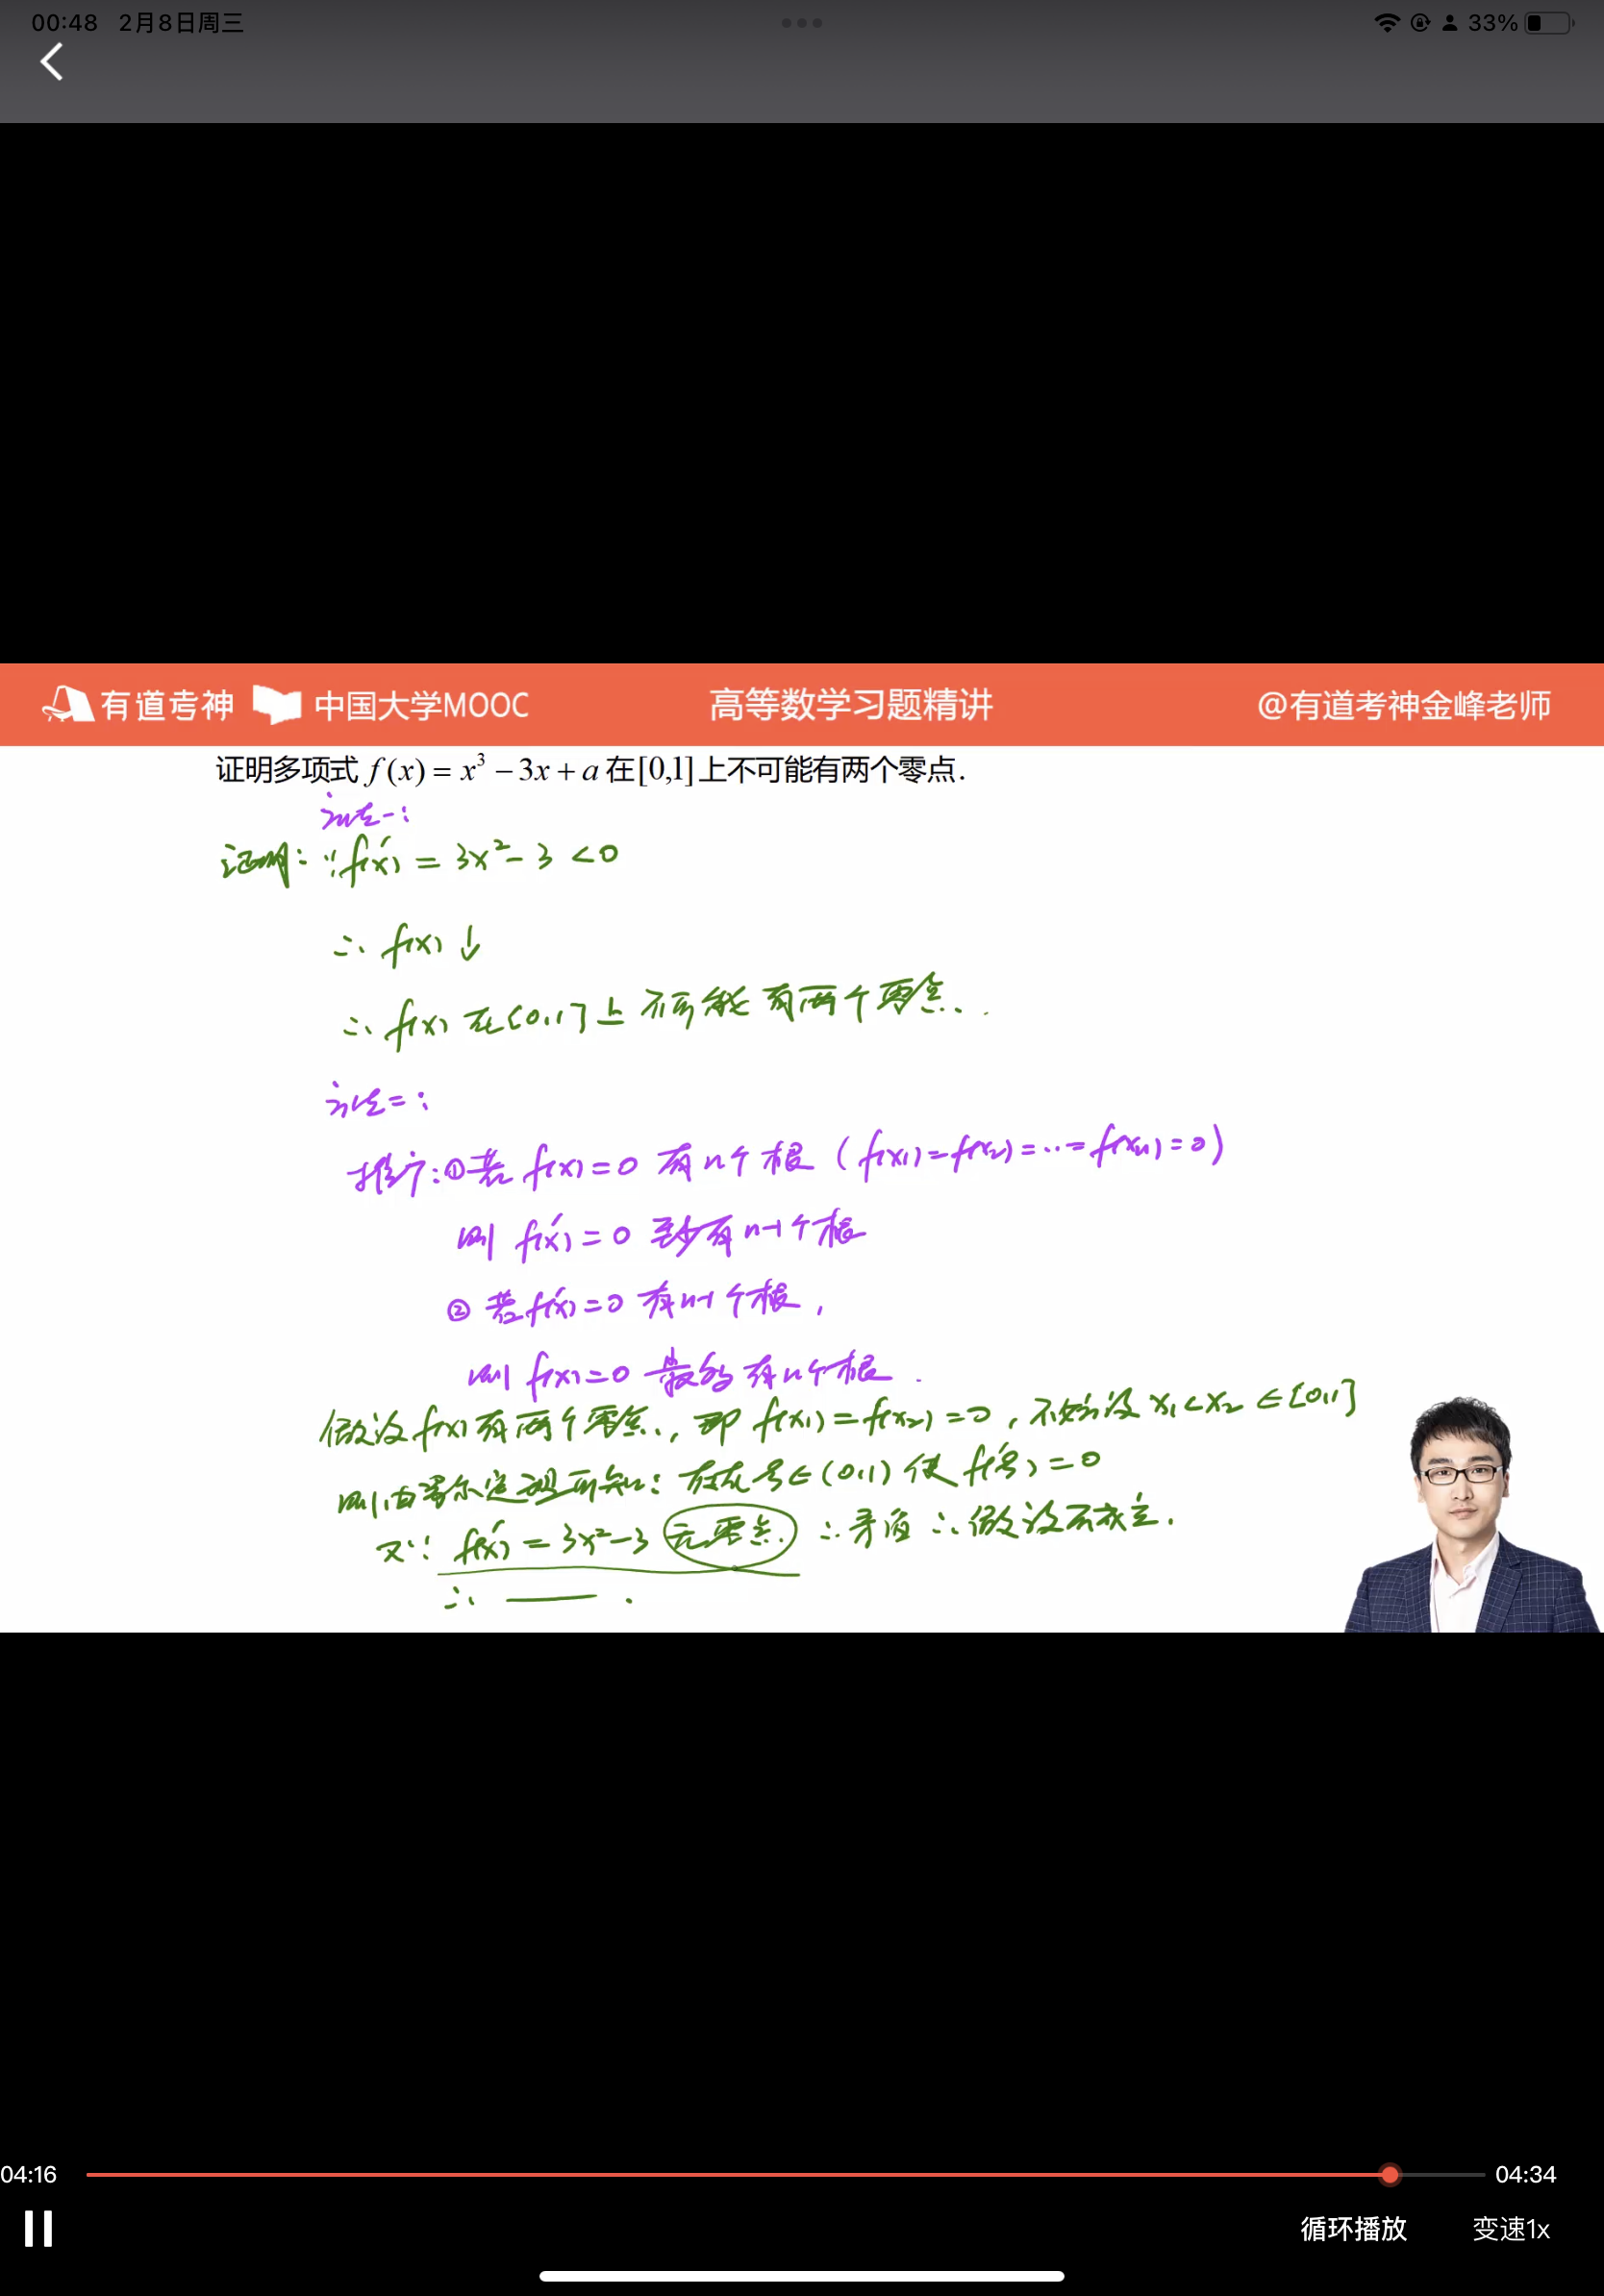 00:48 2月8日周三
33%
有道考神 中国大学MOOC 高等数学习题精讲 @有道考神金峰老师
证明多项式 f(x) = x³ − 3x + a 在[0,1]上不可能有两个零点.
方法一:
证明: ∵ f'(x) = 3x² − 3 < 0
∴ f(x) ↓
∴ f(x) 在[0,1]上 不可能 有两个零点.
方法二:
推广: ① 若 f(x) = 0 有n个根 (f(x₁) = f(x₂) = ... = f(xₙ) = 0)
则 f'(x) = 0 至少有 n-1 个根
② 若 f'(x) = 0 有n-1个根,
则 f(x) = 0 最多有n个根.
假设 f(x) 有两个零点, 即 f(x₁) = f(x₂) = 0, 不妨设 x₁ < x₂ ∈ [0,1]
则由罗尔定理可知: 存在 ξ ∈ (0,1) 使 f'(ξ) = 0
又∵ f'(x) = 3x² − 3 无零点. ∴ 矛盾 ∴ 假设不成立.
∴ —— .
04:16 04:34
循环播放 变速1x